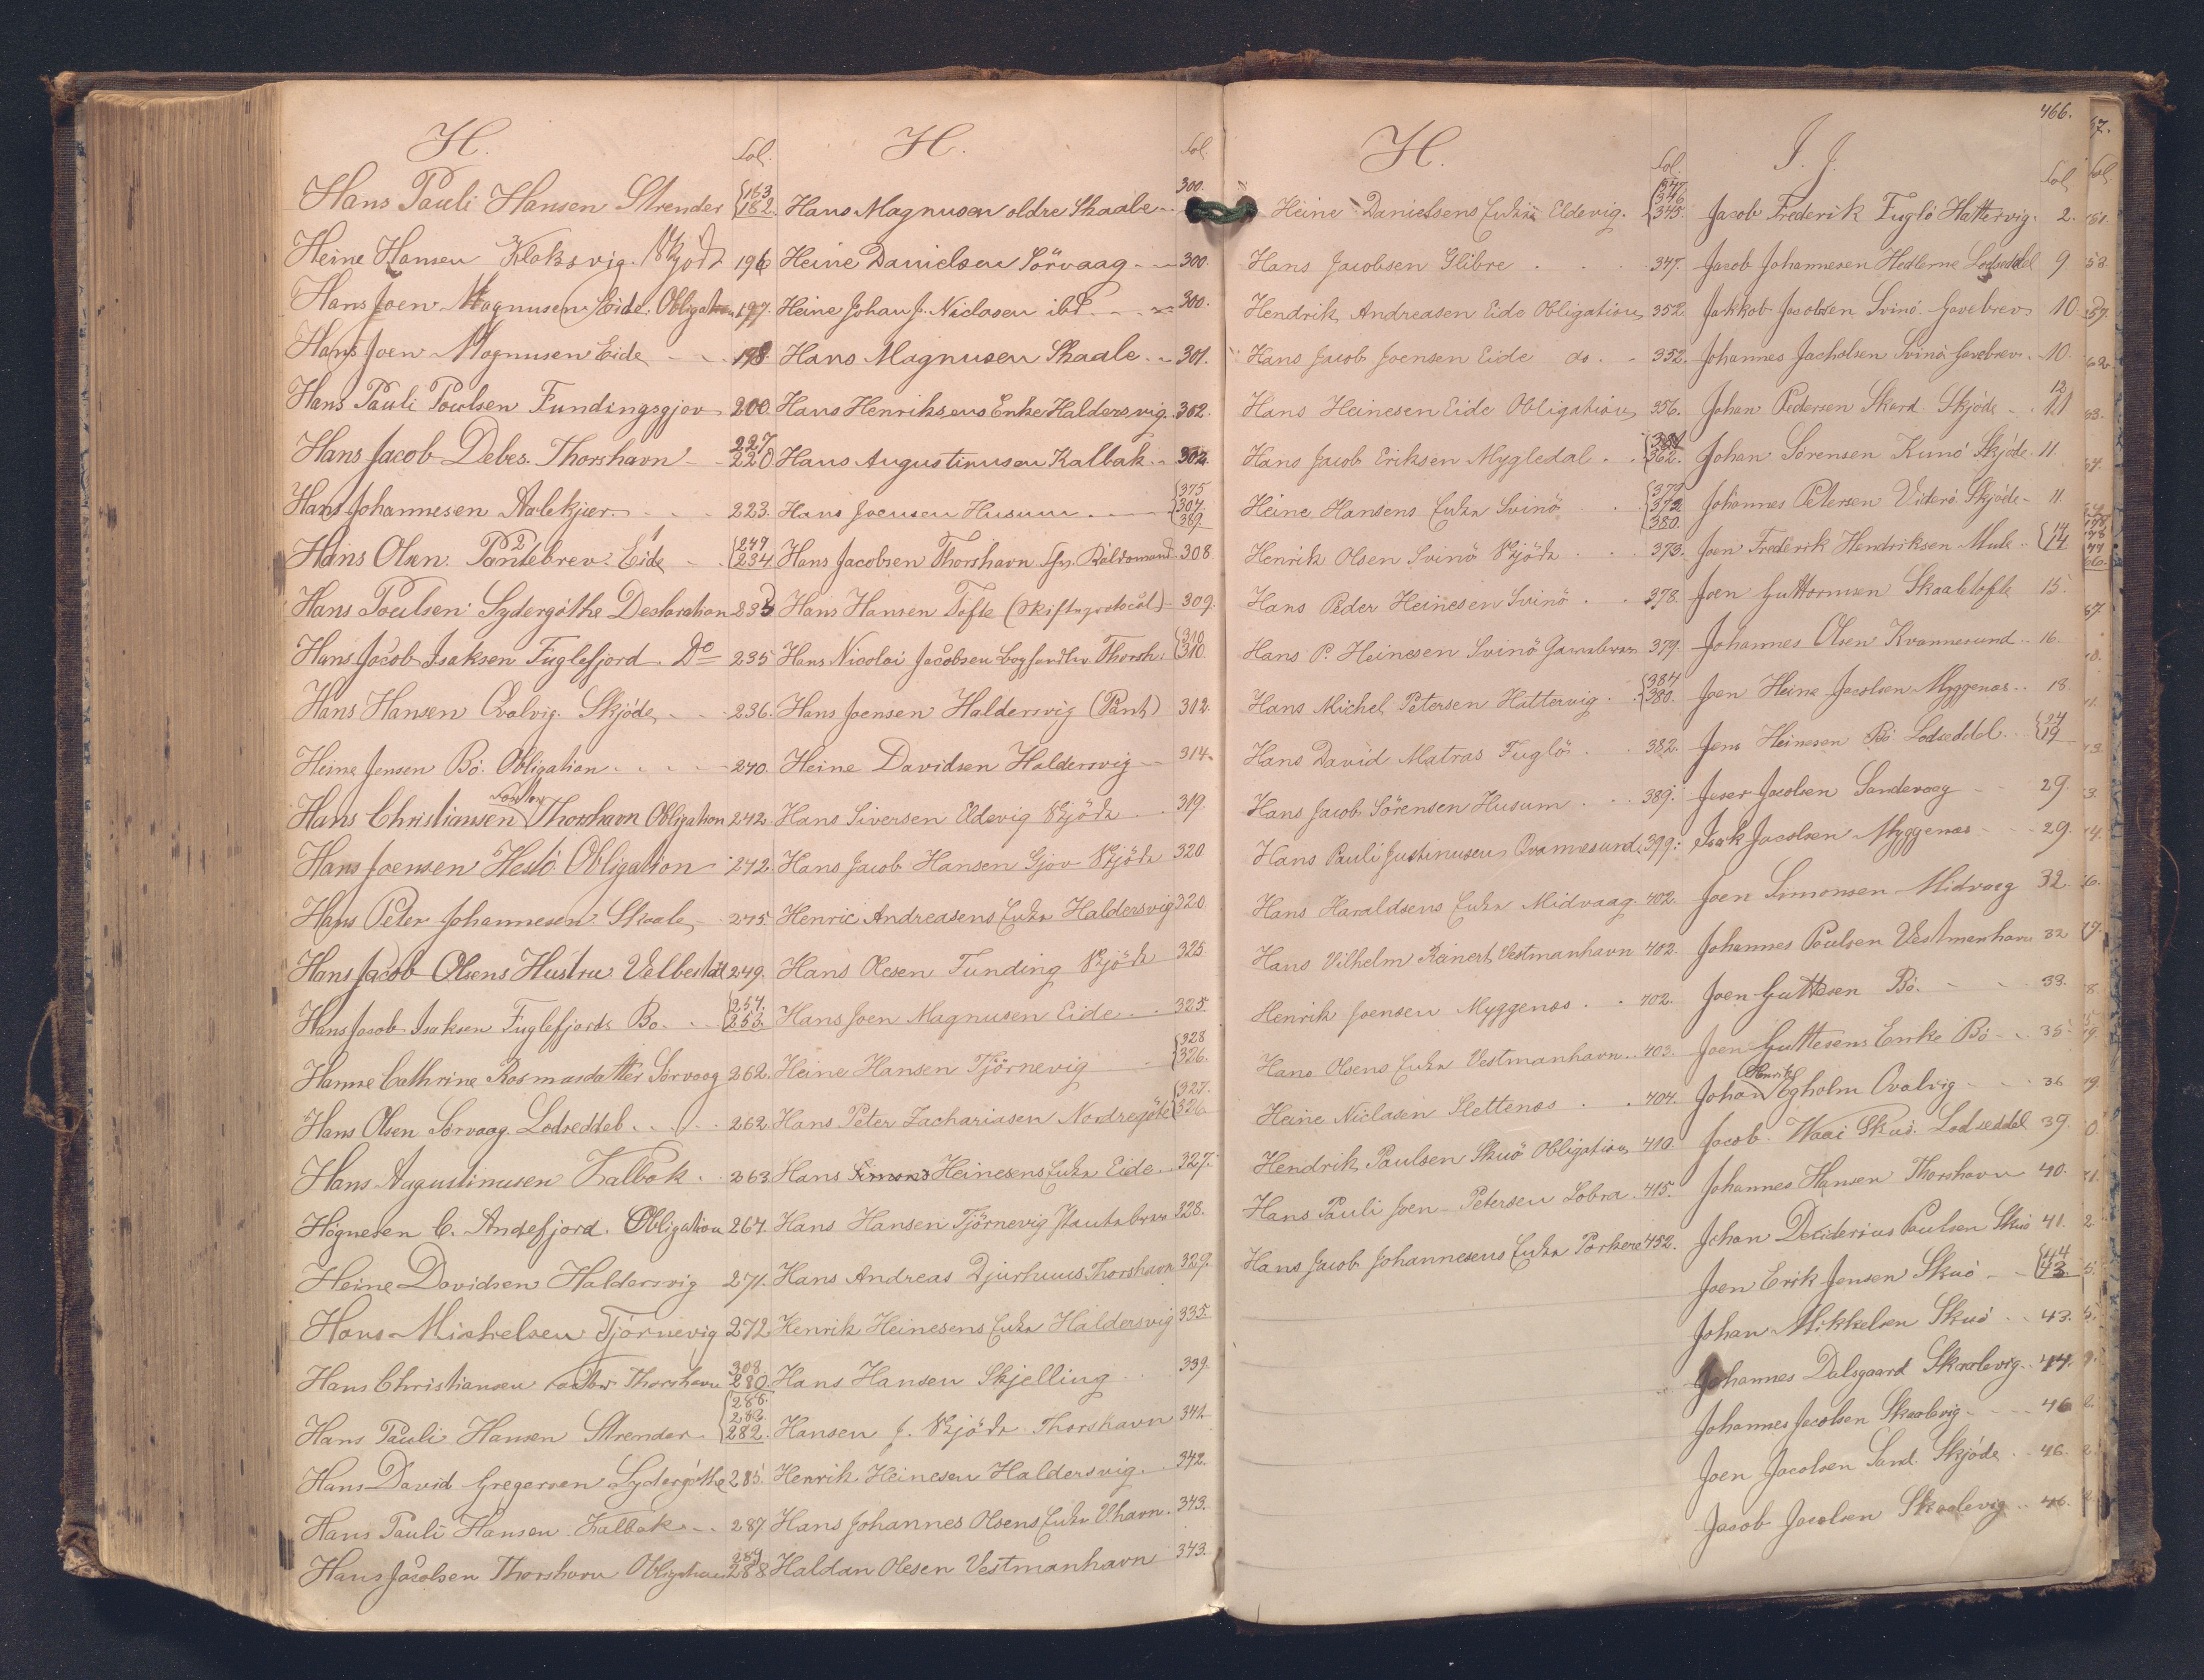 H.
Fol.
Hans Pauli Hansen Strender {163 162.
Heine Hansen Klaksvig. Skjöde 196
Hans Joen Magnusen Eide. Obligation 197.
Hans Joen Magnusen Eide 198.
Hans Pauli Poulsen Fundingsgjov 200.
Hans Jacob Debes. Thorshavn 227 220
Hans Johannesen Aalekjær 223.
Hans Olsen. 2 Pantebrev. Eide {247 234
Hans Poulsen Sydergöthe Deklaration 235
Hans Jacob Isaksen Fuglefjord. Do 235
Hans Hansen Qvalvig. Skjöde 236.
Heine Jensen Bö. Obligation 240.
Hans Christiansen Thorshavn Obligation 242.
Hans Joensen Hestö Obligation 242.
Hans Peter Johannesen Skaale 245.
Hans Jacob Olsens Hustru Velbestad 249.
Hans Jacob Isaksen Fuglefjord. Bo. {254. 253.
Hanne Cathrine Rasmusdatter Sörvaag 262.
Hans Olsen Sörvaag. Lodseddel 262
Hans Augustinusen Kalbak 263.
Högnesen C. Andefjord. Obligation 267.
Heine Davidsen Haldersvig 271.
Hans Michelsen Tjörnevig 272.
Hans Christiansen Thorshavn 308. 280.
Hans Pauli Hansen Strender {286. 283. 282.
Hans David Gregersen Sydergöthe 285.
Hans Pauli Hansen Kalbak 287.
Hans Jacobsen Thorshavn Obligation 284 288
H.
Fol.
Hans Magnusen oldre Skaale 300.
Heine Danielsen Sörvaag 300.
Heine Johan J. Niclasen ibd. 300.
Hans Magnusen Skaale 301.
Hans Henriksens Enke Haldersvig. 302.
Hans Augustinusen Kalbak 302.
Hans Joensen Husum {375 307. 389.
Hans Jacobsen Thorshavn 308.
Hans Hansen Tofte (Skifteprotocol) 309.
Hans Nicolai Jacobsen Thorsh. {310 310.
Hans Joensen Haldersvig (Pant) 312.
Heine Davidsen Haldersvig 314.
Hans Siversen Eldevig Skjöde 319.
Hans Jacob Hansen Gjov Skjöde 320
Henric Andreasens Enke Haldersvig 320.
Hans Olesen Funding Skjöde 325.
Hans Joen Magnusen Eide 325
Heine Hansen Tjörnevig {328 326.
Hans Peter Zachariasen Nordregöte {327. 326
Hans Heinesens Enke Eide 327.
Hans Hansen Tjörnevig Pantebrev 328.
Hans Andreas Djurhuus Thorshavn 329.
Henrik Heinesens Enke Haldersvig 335.
Hans Hansen Skjelling 339.
Hansen J. Skjöde Thorshavn 341
Henrik Heinesen Haldersvig. 342.
Hans Johannes Olsens Enke V.havn. 343.
Haldan Olesen Vestmanhavn 343.
H.
Fol.
Heine Danielsens Enke Eldevig. {347. 346. 345.
Hans Jacobsen Glibre 347.
Hendrik Andreasen Eide Obligation 352.
Hans Jacob Joensen Eide do. 352.
Hans Heinesen Eide Obligation 356.
Hans Jacob Eriksen Mygledal {381 362.
Heine Hansens Enke Svinö {379. 372. 380.
Henrik Olsen Svinö Skjöde 373.
Hans Peder Heinesen Svinö 378.
Hans P. Heinesen Svinö Gavebrev 379.
Hans Michel Petersen Hattervig {384 380.
Hans David Matras Fuglö 382.
Hans Jacob Sörensen Husum 389.
Hans Pauli Justinusen Qvannesund 399.
Hans Haraldsens Enke Midvaag 402.
Hans Vilhelm Reinert Vestmanhavn 402.
Henrik Joensen Myggenæs 402.
Hans Olsens Enke Vestmanhavn 403.
Heine Niclasen Slettenæs 404.
Hendrik Paulsen Skuö Obligation 410.
Hans Pauli Joen-Petersen Lobra 415.
Hans Jacob Johannesens Enke Porkere 452.
466.
I. J.
Fol.
Jacob Frederik Fuglö Hattervig 2.
Jacob Johannesen Lodseddel 9
Jakkob Jacobsen Svinö. Gavebrev 10
Johannes Jacobsen Svinö Gavebrev 10.
Johan Pedersen Skard. Skjöde 12 11
Johan Sörensen Kunö Skjöde 11.
Johannes Petersen Viderö. Skjöde 11
Joen Frederik Hendriksen Mule {14 14
Joen Guttormsen Skaaletofte 15.
Johannes Olsen Kvannesund 16.
Joen Heine Jacobsen Myggenæs 18.
Jens Heinesen Bö Lodseddel {24 19
Jesper Jacobsen Sandevaag 29.
Isak Jacobsen Myggenæs 29.
Joen Simonsen Midvaag 32.
Johannes Poulsen Vestmanhavn 32
Joen Guttesen Bö 33.
Joen Guttesens Enke Bö 35
Johan Henrik Egholm Qvalvig 36
Jacob Waai Skuö. Lodseddel 39.
Johannes Hansen Thorshavn 40.
Johan Desiderius Paulsen Skuö 41.
Joen Erik Jensen Skuö {44 43.
Johan Mikkelsen Skuö 43.
Johannes Dalsgaard Skaalevig 44.
Johannes Jacobsen Skaalevig 46
Joen Jacobsen Sand. Skjöde 46.
Jacob Jacobsen Skaalevig 46.